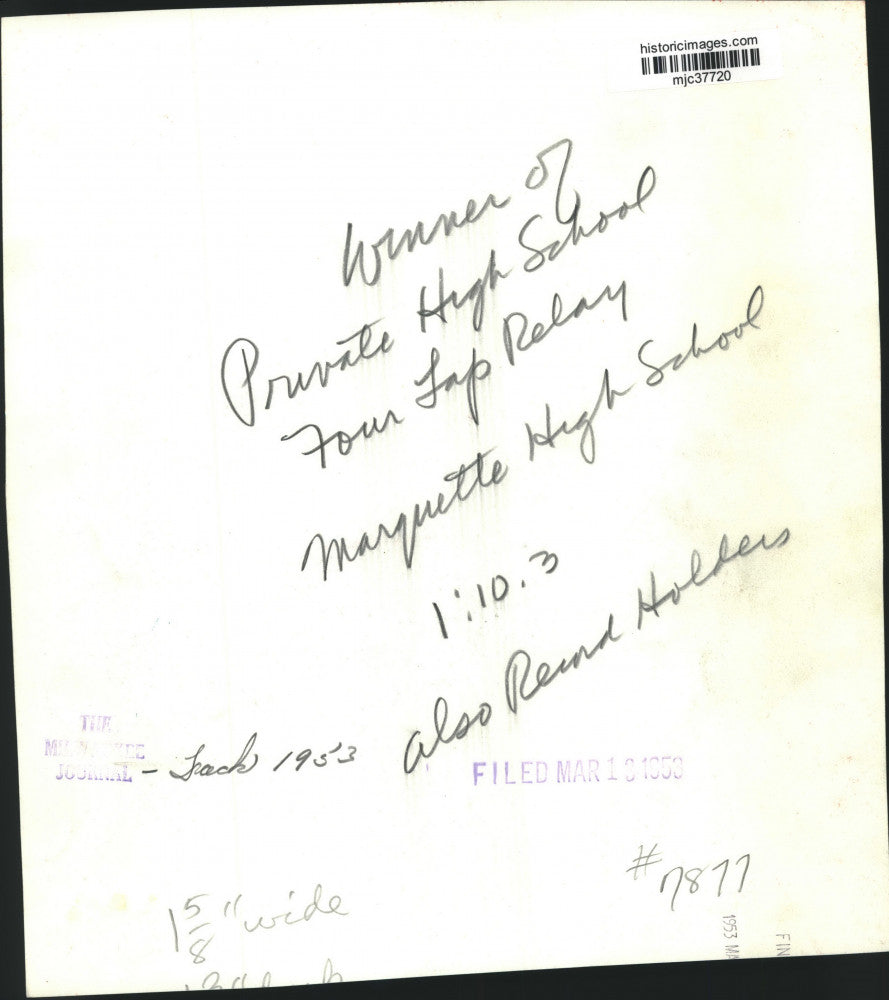 historicimages.com
mjc37720
Winner of
Private High School
Four Lap Relay
Marquette High School
1:10.3
also Record Holders
THE
MILWAUKEE
JOURNAL - Track 1953
FILED MAR 1 1953
# 7877
1 5/8" wide
1953 MA
FIN